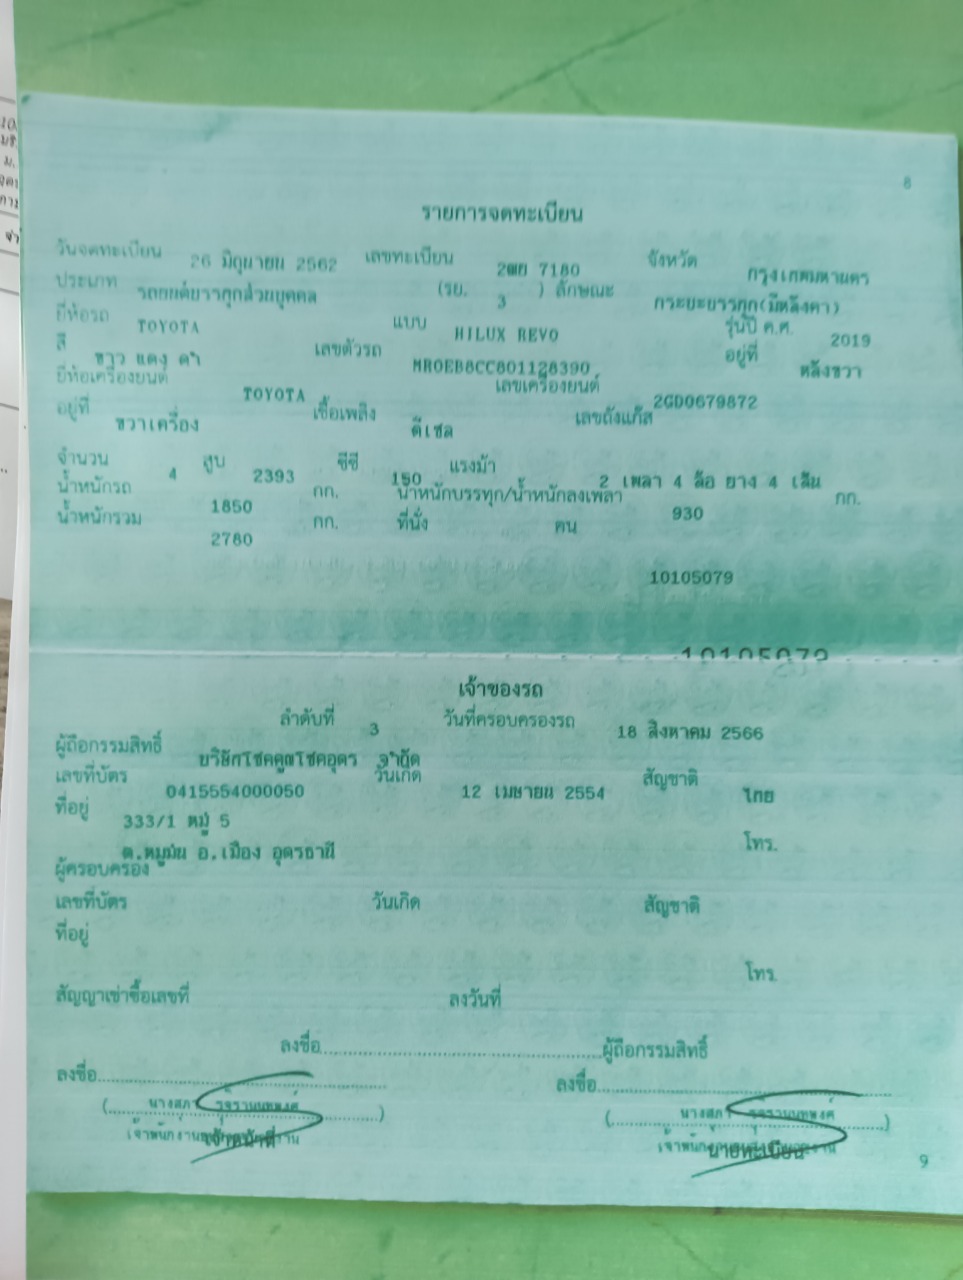 8
รายการจดทะเบียน
วันจดทะเบียน 26 มิถุนายน 2562 เลขทะเบียน 2ฒย 7180 จังหวัด กรุงเทพมหานคร
ประเภท รถยนต์บรรทุกส่วนบุคคล (รย. 3 ) ลักษณะ กระบะบรรทุก(มีหลังคา)
ยี่ห้อรถ TOYOTA แบบ HILUX REVO รุ่นปี ค.ศ. 2019
สี ขาว แดง ดำ เลขตัวรถ MR0EB8CC801128390 อยู่ที่ หลังขวา
ยี่ห้อเครื่องยนต์ TOYOTA เลขเครื่องยนต์ 2GD0679872
อยู่ที่ ขวาเครื่อง เชื้อเพลิง ดีเซล เลขถังแก๊ส
จำนวน 4 สูบ 2393 ซีซี 150 แรงม้า 2 เพลา 4 ล้อ ยาง 4 เส้น
น้ำหนักรถ 1850 กก. น้ำหนักบรรทุก/น้ำหนักลงเพลา 930 กก.
น้ำหนักรวม 2780 กก. ที่นั่ง คน
10105079
เจ้าของรถ
ลำดับที่ 3 วันที่ครอบครองรถ 18 สิงหาคม 2566
ผู้ถือกรรมสิทธิ์ บริษัทโชคคูณโชคอุดร จำกัด
เลขที่บัตร 0415554000050 วันเกิด 12 เมษายน 2554 สัญชาติ ไทย
ที่อยู่ 333/1 หมู่ 5
ต.หมูม่น อ.เมือง อุดรธานี โทร.
ผู้ครอบครอง
เลขที่บัตร วันเกิด สัญชาติ
ที่อยู่
โทร.
สัญญาเช่าซื้อเลขที่ ลงวันที่
ลงชื่อ ผู้ถือกรรมสิทธิ์
ลงชื่อ ลงชื่อ
เจ้าหน้าที่ นายทะเบียน
9